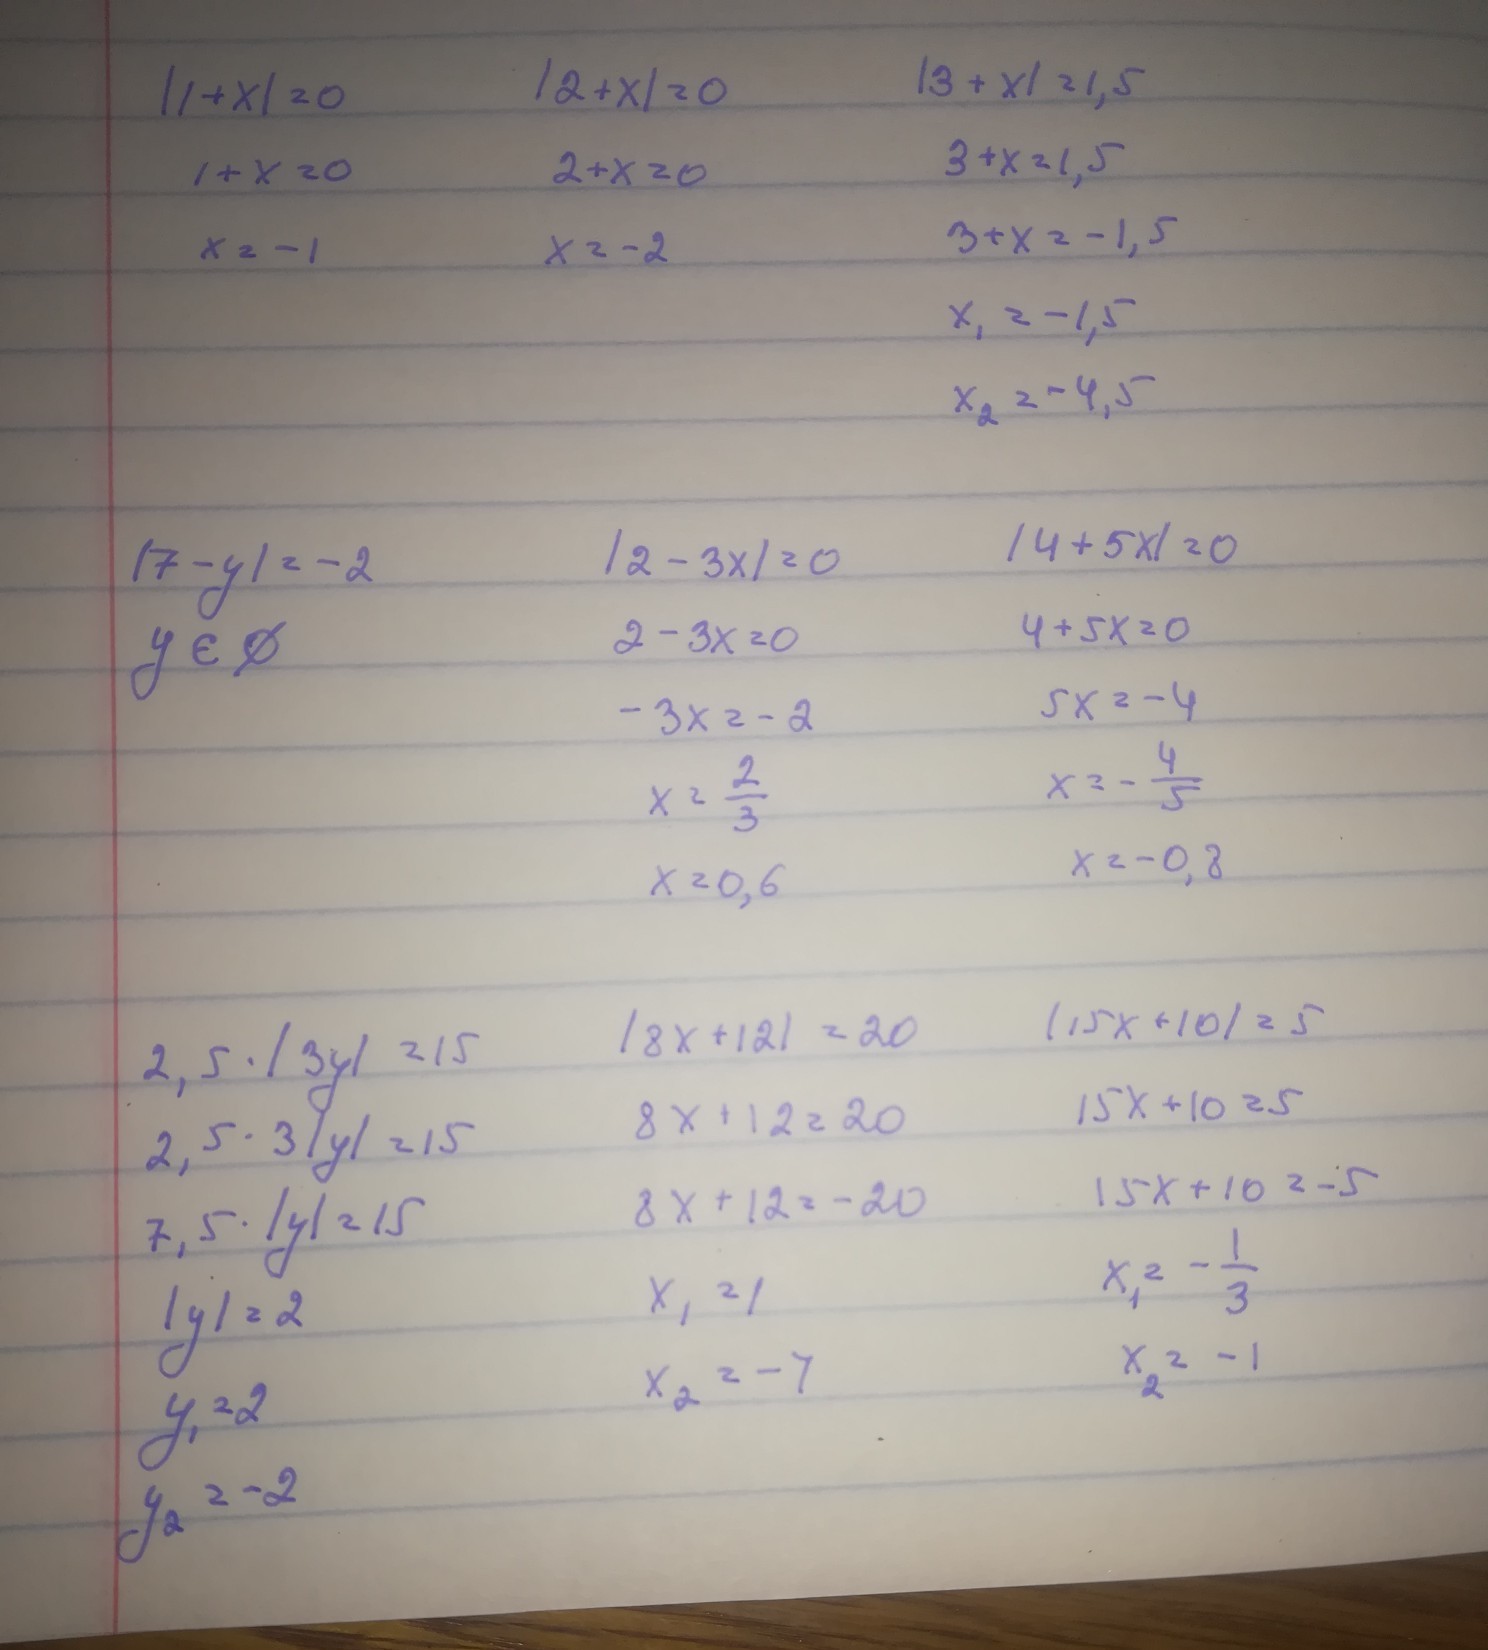 |1+x|=0
1+x=0
x=-1
|2+x|=0
2+x=0
x=-2
|3+x|=1,5
3+x=1,5
3+x=-1,5
x₁=-1,5
x₂=-4,5
|7-y|=-2
y∈∅
|2-3x|=0
2-3x=0
-3x=-2
x=2/3
x=0,6
|4+5x|=0
4+5x=0
5x=-4
x=-4/5
x=-0,8
2,5·|3y|=15
2,5·3|y|=15
7,5·|y|=15
|y|=2
y₁=2
y₂=-2
|8x+12|=20
8x+12=20
8x+12=-20
x₁=1
x₂=-7
|15x+10|=5
15x+10=5
15x+10=-5
x₁=-1/3
x₂=-1